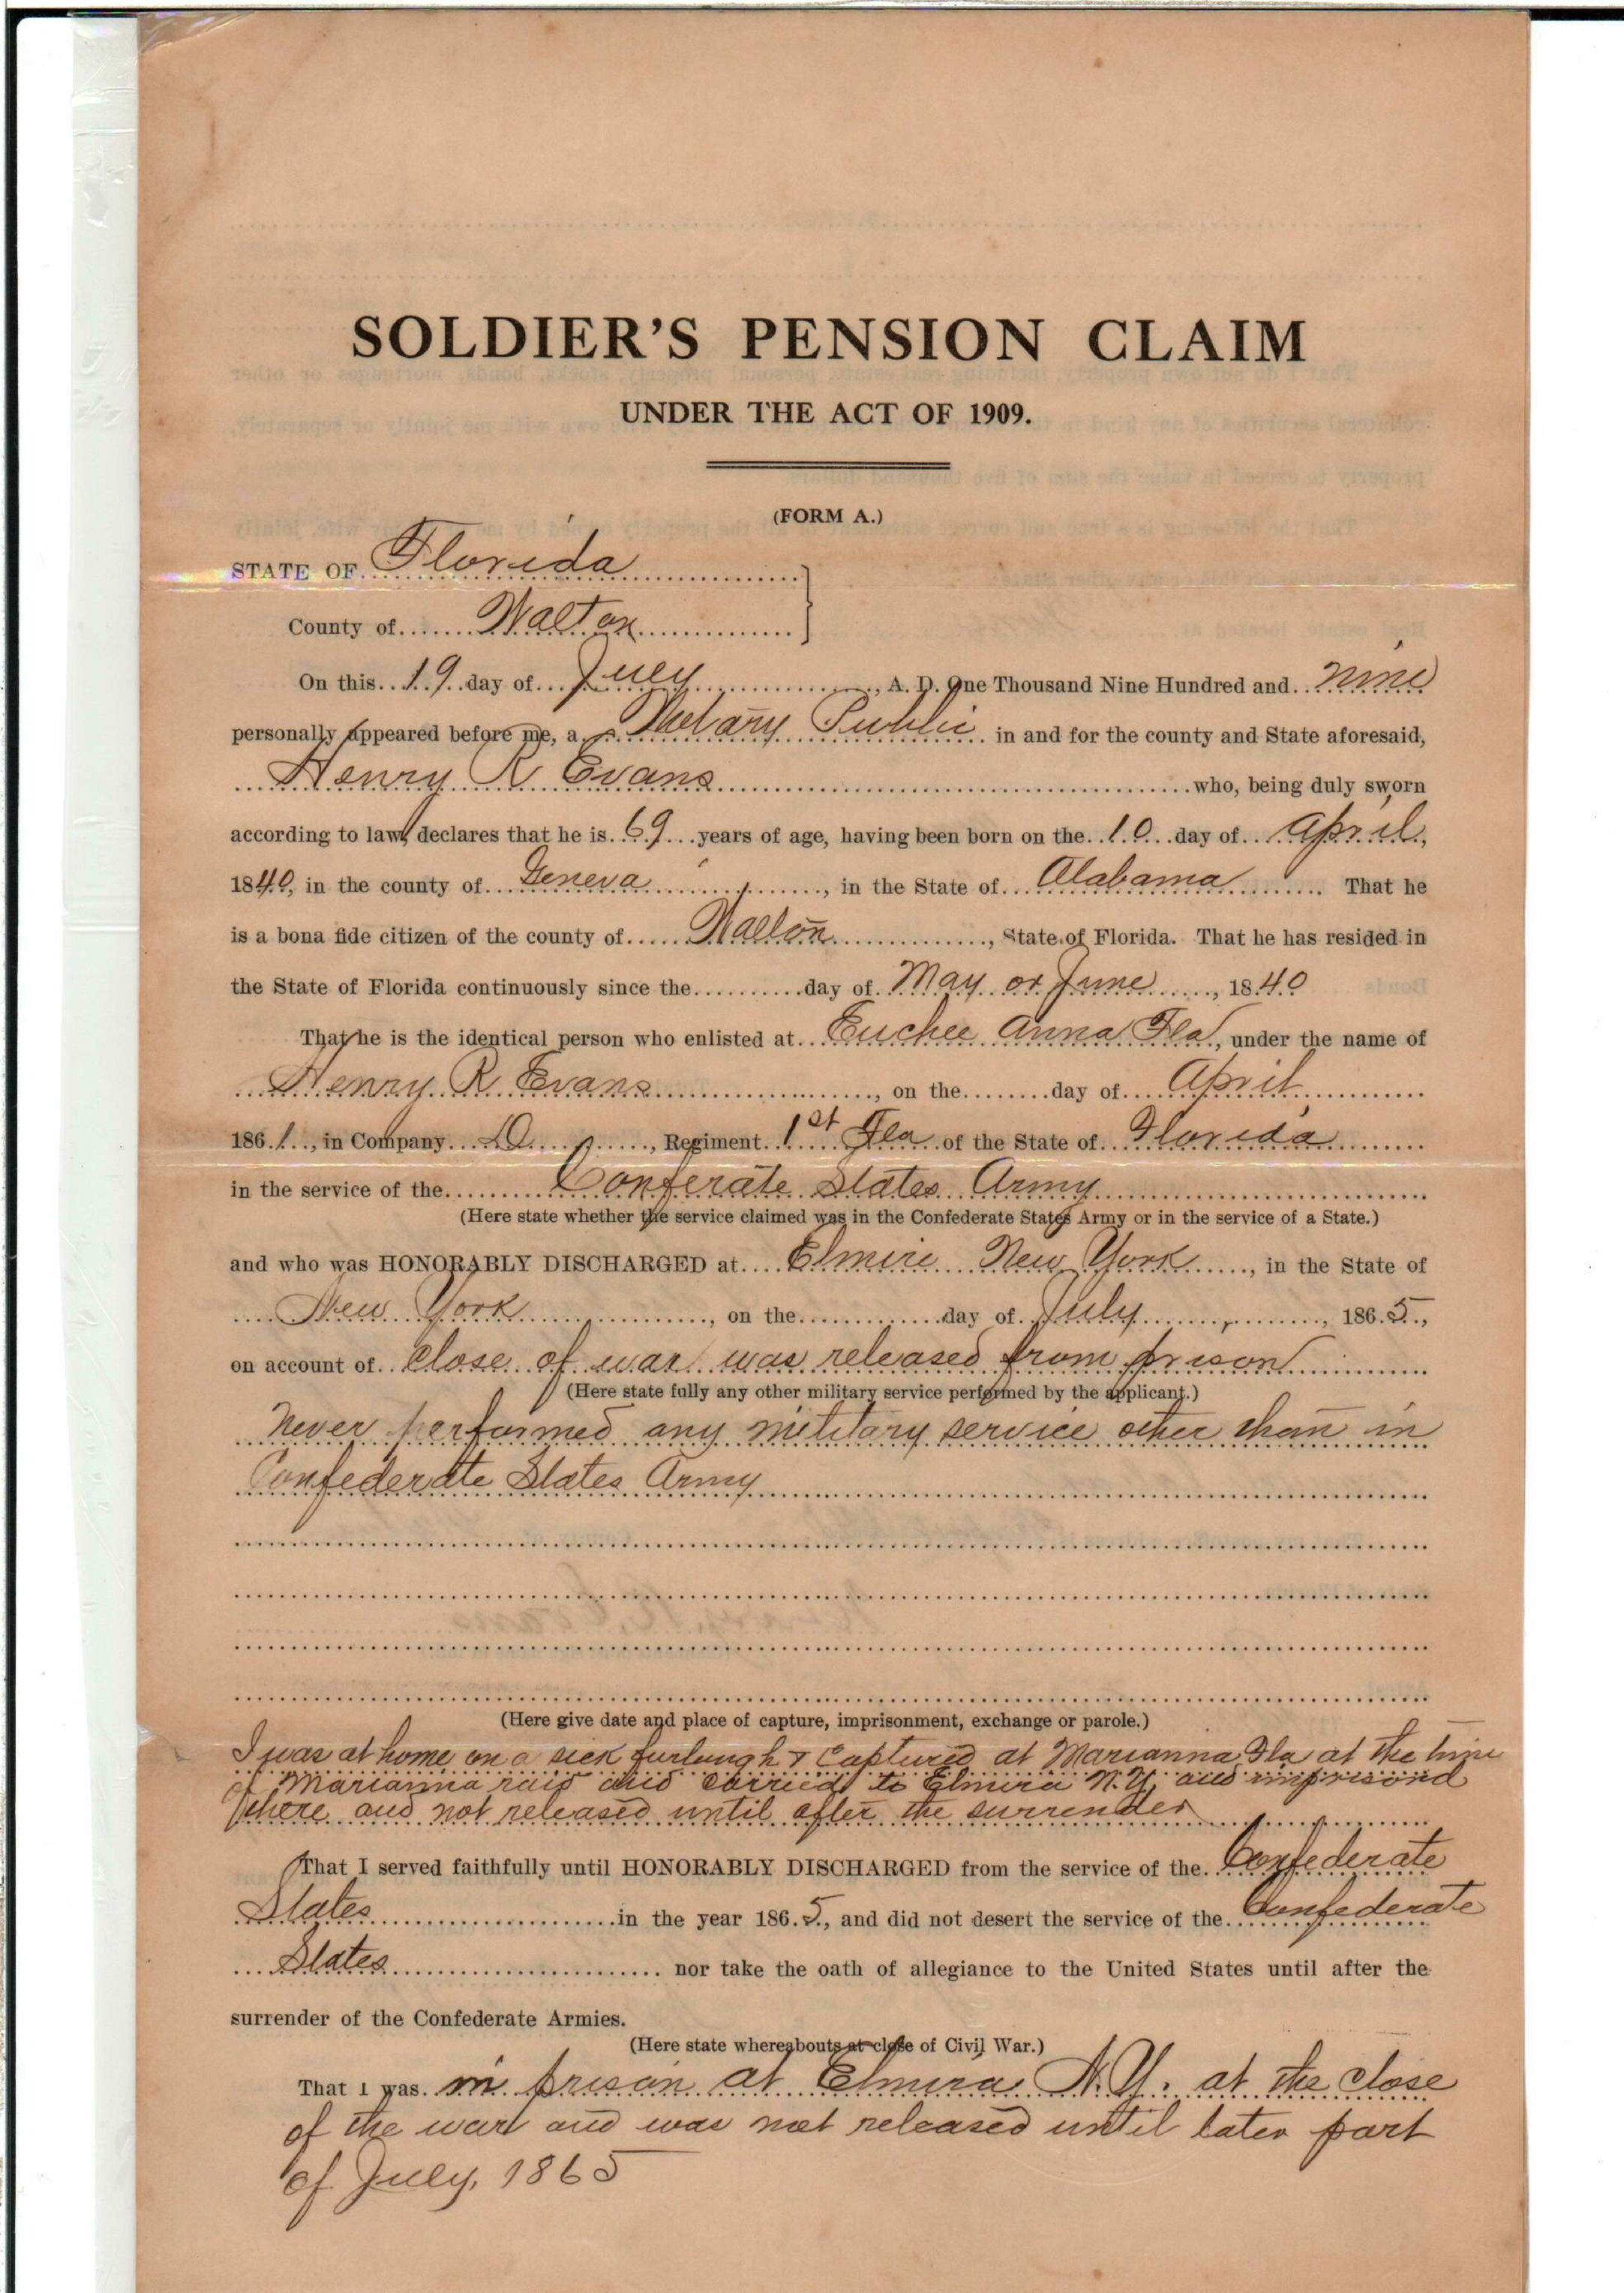 SOLDIER'S PENSION CLAIM
UNDER THE ACT OF 1909.
(FORM A.)
STATE OF Florida
County of Walton
On this 19 day of July, A. D. One Thousand Nine Hundred and nine
personally appeared before me, a Notary Public in and for the county and State aforesaid,
Henry R Evans who, being duly sworn
according to law, declares that he is 69 years of age, having been born on the 10 day of April,
1840, in the county of Geneva, in the State of Alabama. That he
is a bona fide citizen of the county of Walton, State of Florida. That he has resided in
the State of Florida continuously since the day of May or June, 1840
That he is the identical person who enlisted at Euchee Anna Fla, under the name of
Henry R Evans, on the day of April
1861, in Company D, Regiment 1st Fla of the State of Florida
in the service of the Conferate States Army
(Here state whether the service claimed was in the Confederate States Army or in the service of a State.)
and who was HONORABLY DISCHARGED at Elmire New York, in the State of
New York, on the day of July, 1865,
on account of close of war was released from prison
(Here state fully any other military service performed by the applicant.)
Never performed any military service other than in
Confederate States Army
(Here give date and place of capture, imprisonment, exchange or parole.)
I was at home on a sick furlough & Captured at Marianna Fla at the time
of Marianna raid and carried to Elmira N.Y. and imprisond
there and not released until after the surrender
That I served faithfully until HONORABLY DISCHARGED from the service of the Confederate
States in the year 1865, and did not desert the service of the Confederate
States nor take the oath of allegiance to the United States until after the
surrender of the Confederate Armies.
(Here state whereabouts at close of Civil War.)
That I was in prison at Elmira N.Y. at the close
of the war and was not released until later part
of July, 1865